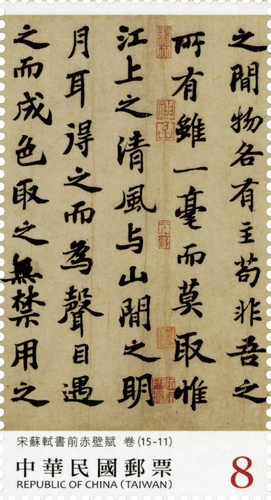 之間物各有主苟非吾之
所有雖一毫而莫取惟
江上之清風与山間之明
月耳得之而為聲目遇
之而成色取之無禁用之
宋蘇軾書前赤壁賦 卷(15-11)
中華民國郵票
REPUBLIC OF CHINA (TAIWAN)
8